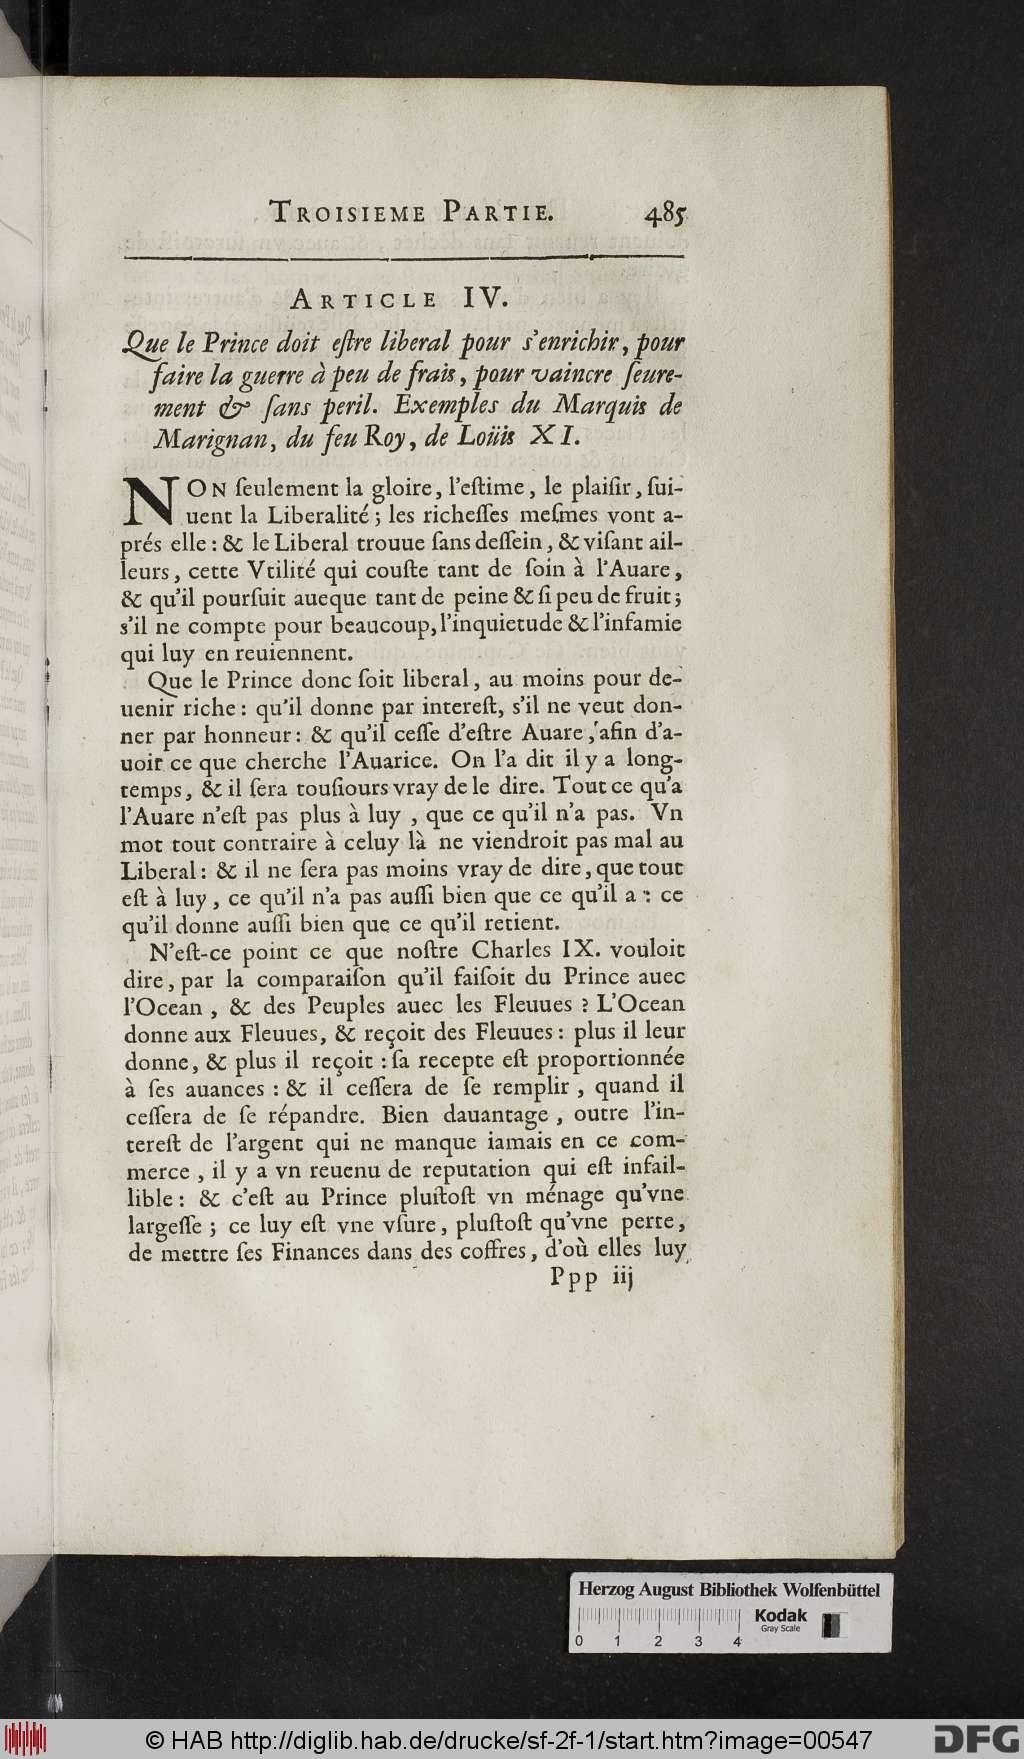 TROISIEME PARTIE. 485
ARTICLE IV.
Que le Prince doit eſtre liberal pour s'enrichir, pour
faire la guerre à peu de frais, pour vaincre ſeure-
ment & ſans peril. Exemples du Marquis de
Marignan, du feu Roy, de Loüis XI.
NON ſeulement la gloire, l'eſtime, le plaiſir, ſui-
uent la Liberalité; les richeſſes meſmes vont a-
prés elle: & le Liberal trouue ſans deſſein, & viſant ail-
leurs, cette Vtilité qui couſte tant de ſoin à l'Auare,
& qu'il pourſuit aueque tant de peine & ſi peu de fruit;
s'il ne compte pour beaucoup, l'inquietude & l'infamie
qui luy en reuiennent.
Que le Prince donc ſoit liberal, au moins pour de-
uenir riche: qu'il donne par intereſt, s'il ne veut don-
ner par honneur: & qu'il ceſſe d'eſtre Auare, afin d'a-
uoir ce que cherche l'Auarice. On l'a dit il y a long-
temps, & il ſera touſiours vray de le dire. Tout ce qu'a
l'Auare n'eſt pas plus à luy, que ce qu'il n'a pas. Vn
mot tout contraire à celuy là ne viendroit pas mal au
Liberal: & il ne ſera pas moins vray de dire, que tout
eſt à luy, ce qu'il n'a pas auſſi bien que ce qu'il a: ce
qu'il donne auſſi bien que ce qu'il retient.
N'eſt-ce point ce que noſtre Charles IX. vouloit
dire, par la comparaiſon qu'il faiſoit du Prince auec
l'Ocean, & des Peuples auec les Fleuues? L'Ocean
donne aux Fleuues, & reçoit des Fleuues: plus il leur
donne, & plus il reçoit: ſa recepte eſt proportionnée
à ſes auances: & il ceſſera de ſe remplir, quand il
ceſſera de ſe répandre. Bien dauantage, outre l'in-
tereſt de l'argent qui ne manque iamais en ce com-
merce, il y a vn reuenu de reputation qui eſt infail-
lible: & c'eſt au Prince pluſtoſt vn ménage qu'vne
largeſſe; ce luy eſt vne vſure, pluſtoſt qu'vne perte,
de mettre ſes Finances dans des coffres, d'où elles luy
Ppp iij
Herzog August Bibliothek Wolfenbüttel
Kodak
Gray Scale
0 1 2 3 4
© HAB http://diglib.hab.de/drucke/sf-2f-1/start.htm?image=00547
DFG